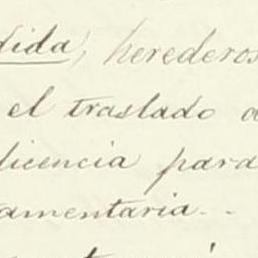 dida, herederos
el traslado a
licencia para
amentaria. -